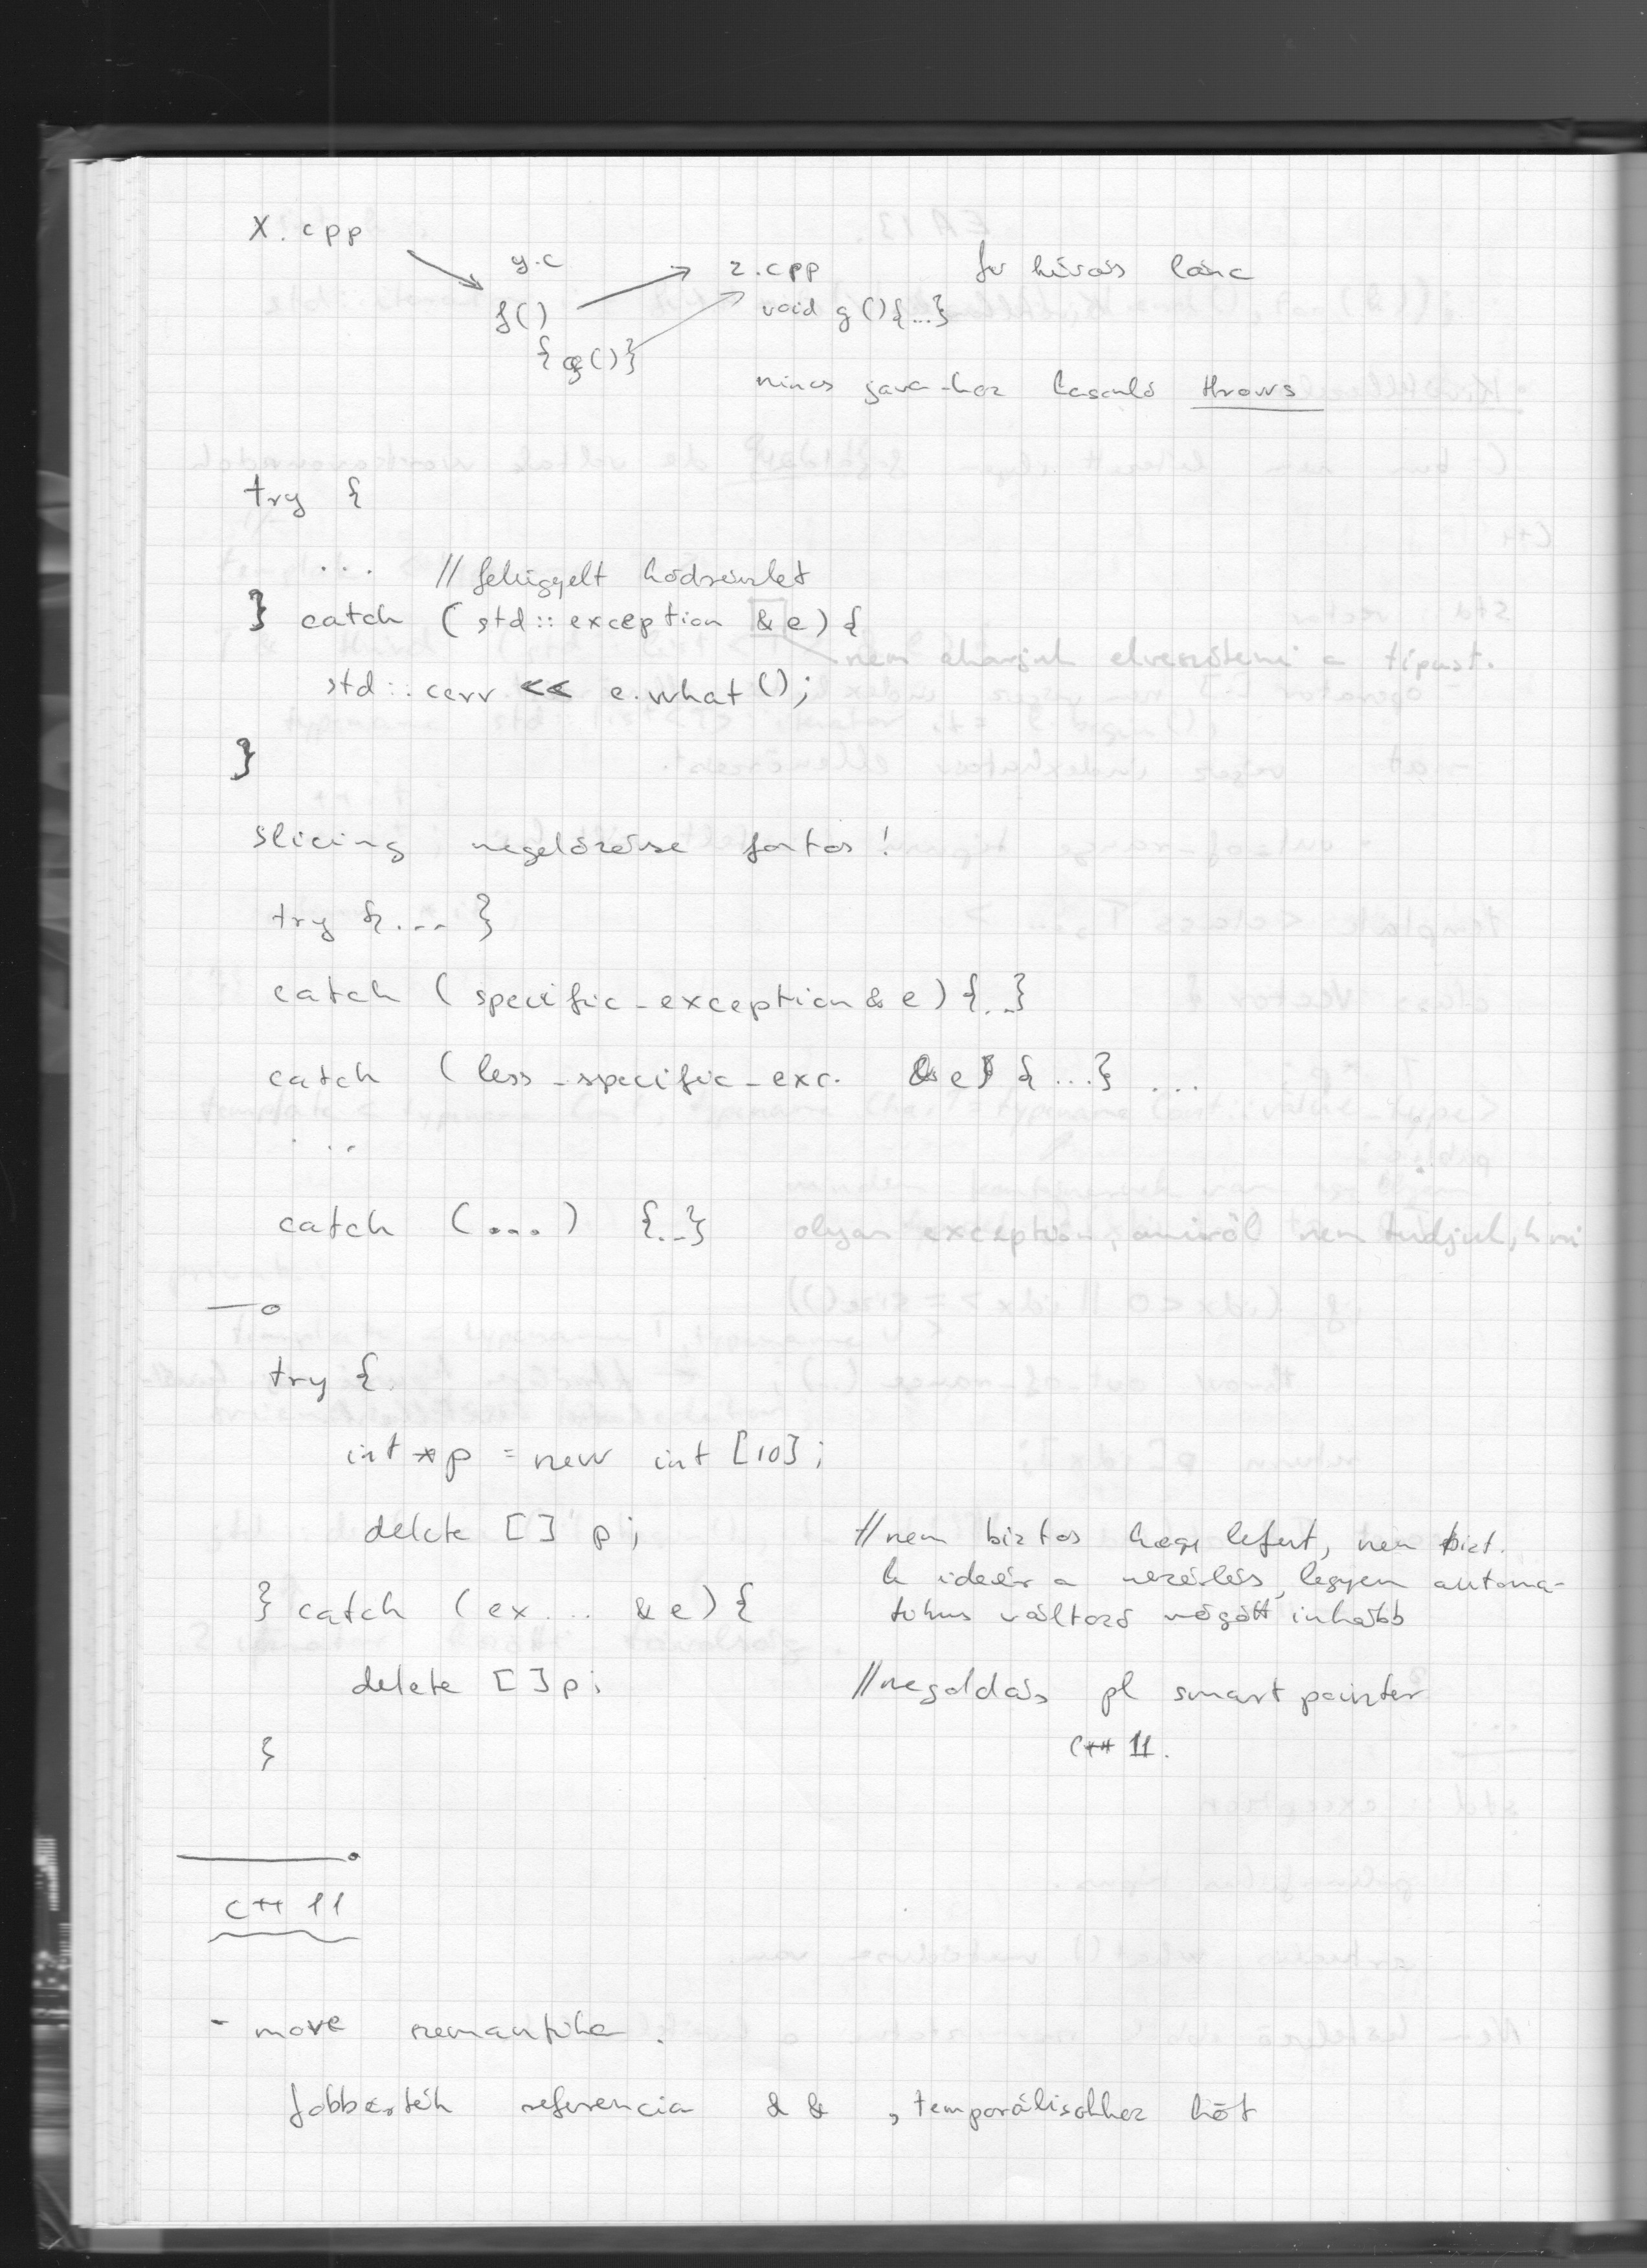 X.cpp
y.c
z.cpp
fv hívás lánc
f()
void g(){...}
{g()}
nincs java-hoz hasonló throws
try {
... // felügyelt kódrészlet
} catch (std::exception & e) {
nem akarjuk elveszíteni a típust.
std::cerr << e.what();
}
slicing megelőzése fontos!
try {... }
catch (specific_exception & e) {..}
catch (less_specific_exc. & e) { ...} ...
...
catch (...) {..} olyan exception, amiről nem tudjuk, h mi
try {
int *p = new int [10];
delete [] p; // nem biztos hogy lefut, nem bizt.
h ideér a vezérlés, legyen automa-
} catch (ex... & e) { tikus változó mögött inkább
delete [] p; // megoldás pl smart pointer
} C++ 11.
C++ 11
- move szemantika.
Jobbérték referencia &&, temporálisokhoz köt